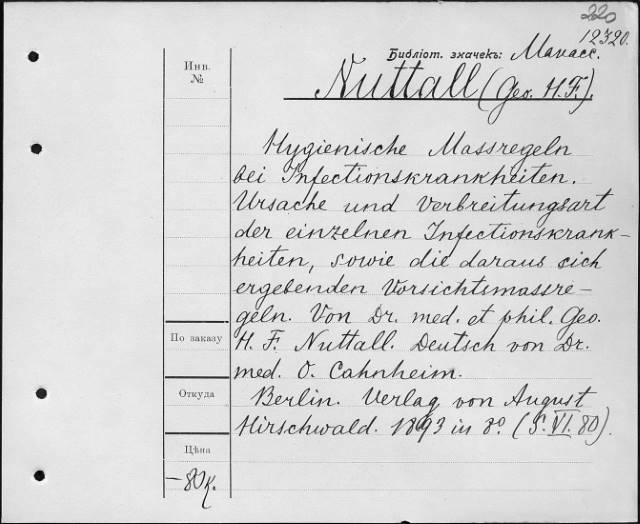 220
12320.
Библіот. значекъ: Манасс.
Инв.
№
Nuttall (Geo. H.F.).
Hygienische Massregeln
bei Infectionskrankheiten.
Ursache und Verbreitungsart
der einzelnen Infectionskrank-
heiten, sowie die daraus sich
ergebenden Vorsichtsmassre-
geln. Von Dr. med. et phil. Geo.
По заказу
H. F. Nuttall. Deutsch von Dr.
med. O. Cahnheim.
Откуда
Berlin. Verlag von August
Hirschwald. 1893 in 8º. (S. VI. 80).
Цѣна
—80к.